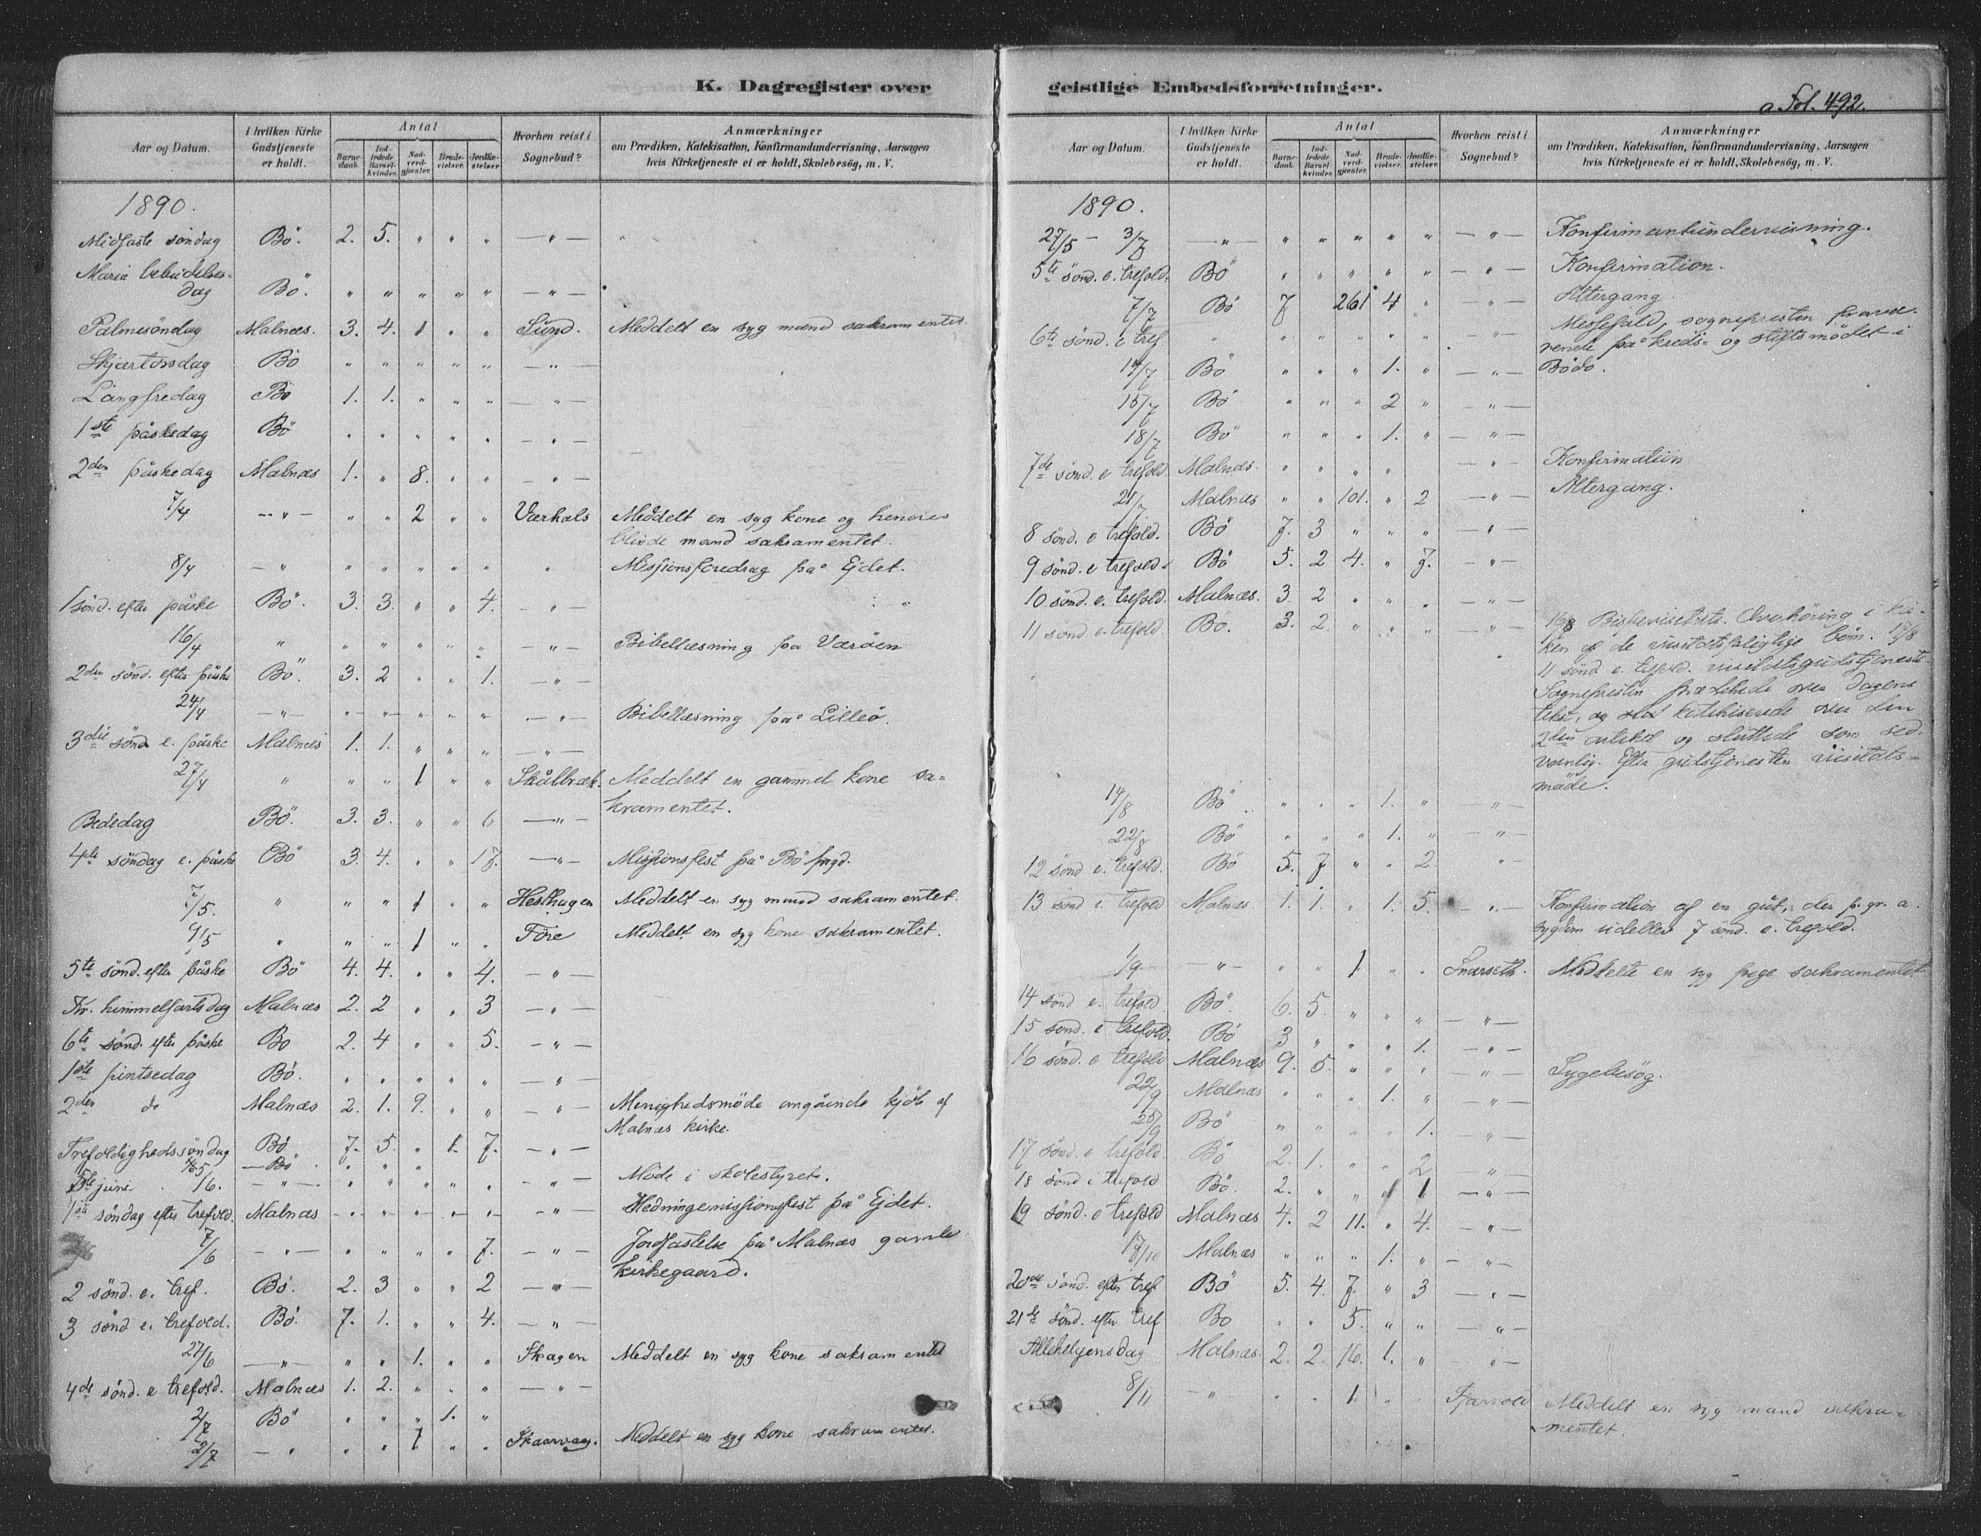 K. Dagregister over
Aar og Datum. I hvilken Kirke Gudstjeneste er holdt. Antal Barnedaab. Indledede Barselkvinder. Nadverdgjæster. Brudevielser. Jordfæstelser. Hvorhen reist i Sognebud? Anmærkninger om Prædiken, Katekisation, Konfirmandundervisning, Aarsagen hvis Kirketjeneste ei er holdt, Skolebesøg, m. V.
1890.
Midfaste søndag Bö. 2. 5. " " " — " — "
Maria bebudelses-
dag Bö. " " " " " — " —
Palmesöndag Malnæs. 3. 4. 1 " " Sund. Meddelt en syg mand sakramentet
Skjærtorsdag Bö " " " " " — " —
Langfredag Bö 1. 1. " " " — " —
1ste påskedag Bö " " " " " — " —
2den påskedag Malnæs 1. " 8. " " — " —
7/4 — " — " " 2 " " Værhals Meddelt en syg kone og hendes
blinde mand sakramentet.
8/4 — " " " " " " " Missionsforedrag på Ejdet.
1 sönd. efter påske Bö. 3. 3. " " 4. — " —
16/4 " " " " " " — " — Bibellæsning på Væröen
2den sönd. efter påske Bö. 3. 2 " " 1. — " —
24/4 — " — " " " " " — " — Bibellæsning på Lilleö.
3die sönd e. påske Malnæs 1. 1. " " " — " —
27/4 " " " 1 " " Skålbræk. Meddelt en gammel kone sa-
kramentet.
Bededag Bö. 3. 3. " " 6 — " —
4de söndag e. påske Bö 3. 4. " " 17. — " — Missionsfest på Bö pgd.
7/5. " " " 1 " " Hesthagen Meddelt en syg mand sakramentet.
9/5 " " " 1 " " Före Meddelt en syg kone sakramentet.
5te sönd. efter påske Bö 4. 4. " " 4. — " —
Kr. himmelfartsdag Malnæs 2. 2 " " 3 — " —
6te sönd. efter påske Bö 2. 4 " " 5. — " —
1ste pintsedag Bö. " " " " " — " —
2den do Malnæs 2. 1. 9. " " — " — Menighedsmöde angående kjöb af
Malnæs kirke.
Trefoldighedssöndag Bö 7. 5. " 1. 7. — " —
— Bö " " "
5te juni 16. — " — " " " " " — " — Möde i skolestyret.
1ste söndag efter trefold. Malnæs " " " " " — " — Hedningemissionsfest på Ejdet.
7/6 — " — " " " " 7. — " — Jordfæstelse på Malnæs gamle
kirkegaard.
2 sönd. e. tref. Bö. 2. 3 " " 2 — " —
3 sönd e. trefold. Bö. 7. 1. " " 4. — " —
27/6 — " — " " 1. " " Skagen Meddelt en syg kone sakramentet
4de sönd. e trefold. Malnæs 1. 2. " " " — " —
2/7 Bö " " " 1. "
2/7 — " " " 1 " " Skaarvaag. Meddelt en syg kone sakramentet.
geistlige Embedsforretninger.
Fol. 492.
Aar og Datum. I hvilken Kirke Gudstjeneste er holdt. Antal Barnedaab. Indledede Barselkvinder. Nadverdgjæster. Brudevielser. Jordfæstelser. Hvorhen reist i Sognebud? Anmærkninger om Prædiken, Katekisation, Konfirmandundervisning, Aarsagen hvis Kirketjeneste ei er holdt, Skolebesøg, m. V.
1890.
27/5 — 3/7 — " — " " " " " — " — Konfirmantundervisning.
5te sönd. e. trefold. Bö " " " " " — " — Konfirmation.
7/7 Bö 7 261 4 " — " — Altergang.
6te sönd. e tref. " " " " " " — " — Messefald, sognepresten fravæ-
rende på kreds- og stiftsmödet i
Bodö.
14/7 Bö " " " 1. " — " —
15/7 Bö " " " 2 " — " —
18/7 Bö " " " 1. " — " —
7de sönd e trefold. Malnæs. " " " " — " — Konfirmation
21/7 Malnæs " " 101. " 2 — " — Altergang.
8 sönd. e trefold. Bö 7. 3 " " " "
9 sönd. e trefold. Bö 5. 2 4. " 7. — " —
10 sönd. e. trefold. Malnæs. 3. 2 " " " — " —
11 sönd e. trefold. Bö. 3. 2. " " " — " — 16/8 Bispevisitats. Overhöring i kir-
ken af de visitatspligtige börn. 17/8
11 sönd e. trefold. visitatsgudstjeneste.
Sognepresten prækede over dagens
tekst, og katekiserede over den
2den artikel og sluttede som sed-
vanlig. Efter gudstjenesten visitats-
möde.
14/8 Bö " " " 1. " "
22/8 Bö " " " 1. " — " —
12 sönd e. trefold. Bö 5. 7 " " 2 "
13 sönd e. trefold Malnæs. 1. 1. " 1. 5. — " — Konfirmation af en gut, der p. gr. a.
sygdom udeblev 7 sönd. e. trefold.
1/9 — " — " " 1 " " Snarseth. Meddelte en syg pige sakramentet
14 sönd e. trefold Bö. 6. 5. " " " — " —
15 sönd. e trefold. Bö 3 " " " 1. — " —
16 sönd. e trefold Malnæs 9. 5. " " " — " — Sygebesög.
22/9 Malnæs " " " 1. " — " —
25/9 Bö " " " " 1. — " —
17 sönd. e trefold Bö 2. 1. " " 2 "
18 sönd e trefold Bö. 2. " " 1 1 — " —
19 sönd. e trefold Malnæs 4. 2 11. " 4. — " —
Malnæs " " " 1. " — " —
20de sönd. efter tref Bö 5. 4. 7. " 3 — " —
21de sönd. efter tref Bö " " 5. " " — " —
Allehelgensdag Malnæs. 2. 2. 16. 1. " — " —
8/11 — " — " " 1 " " Meddelt en syg mand sakra-
mentet.